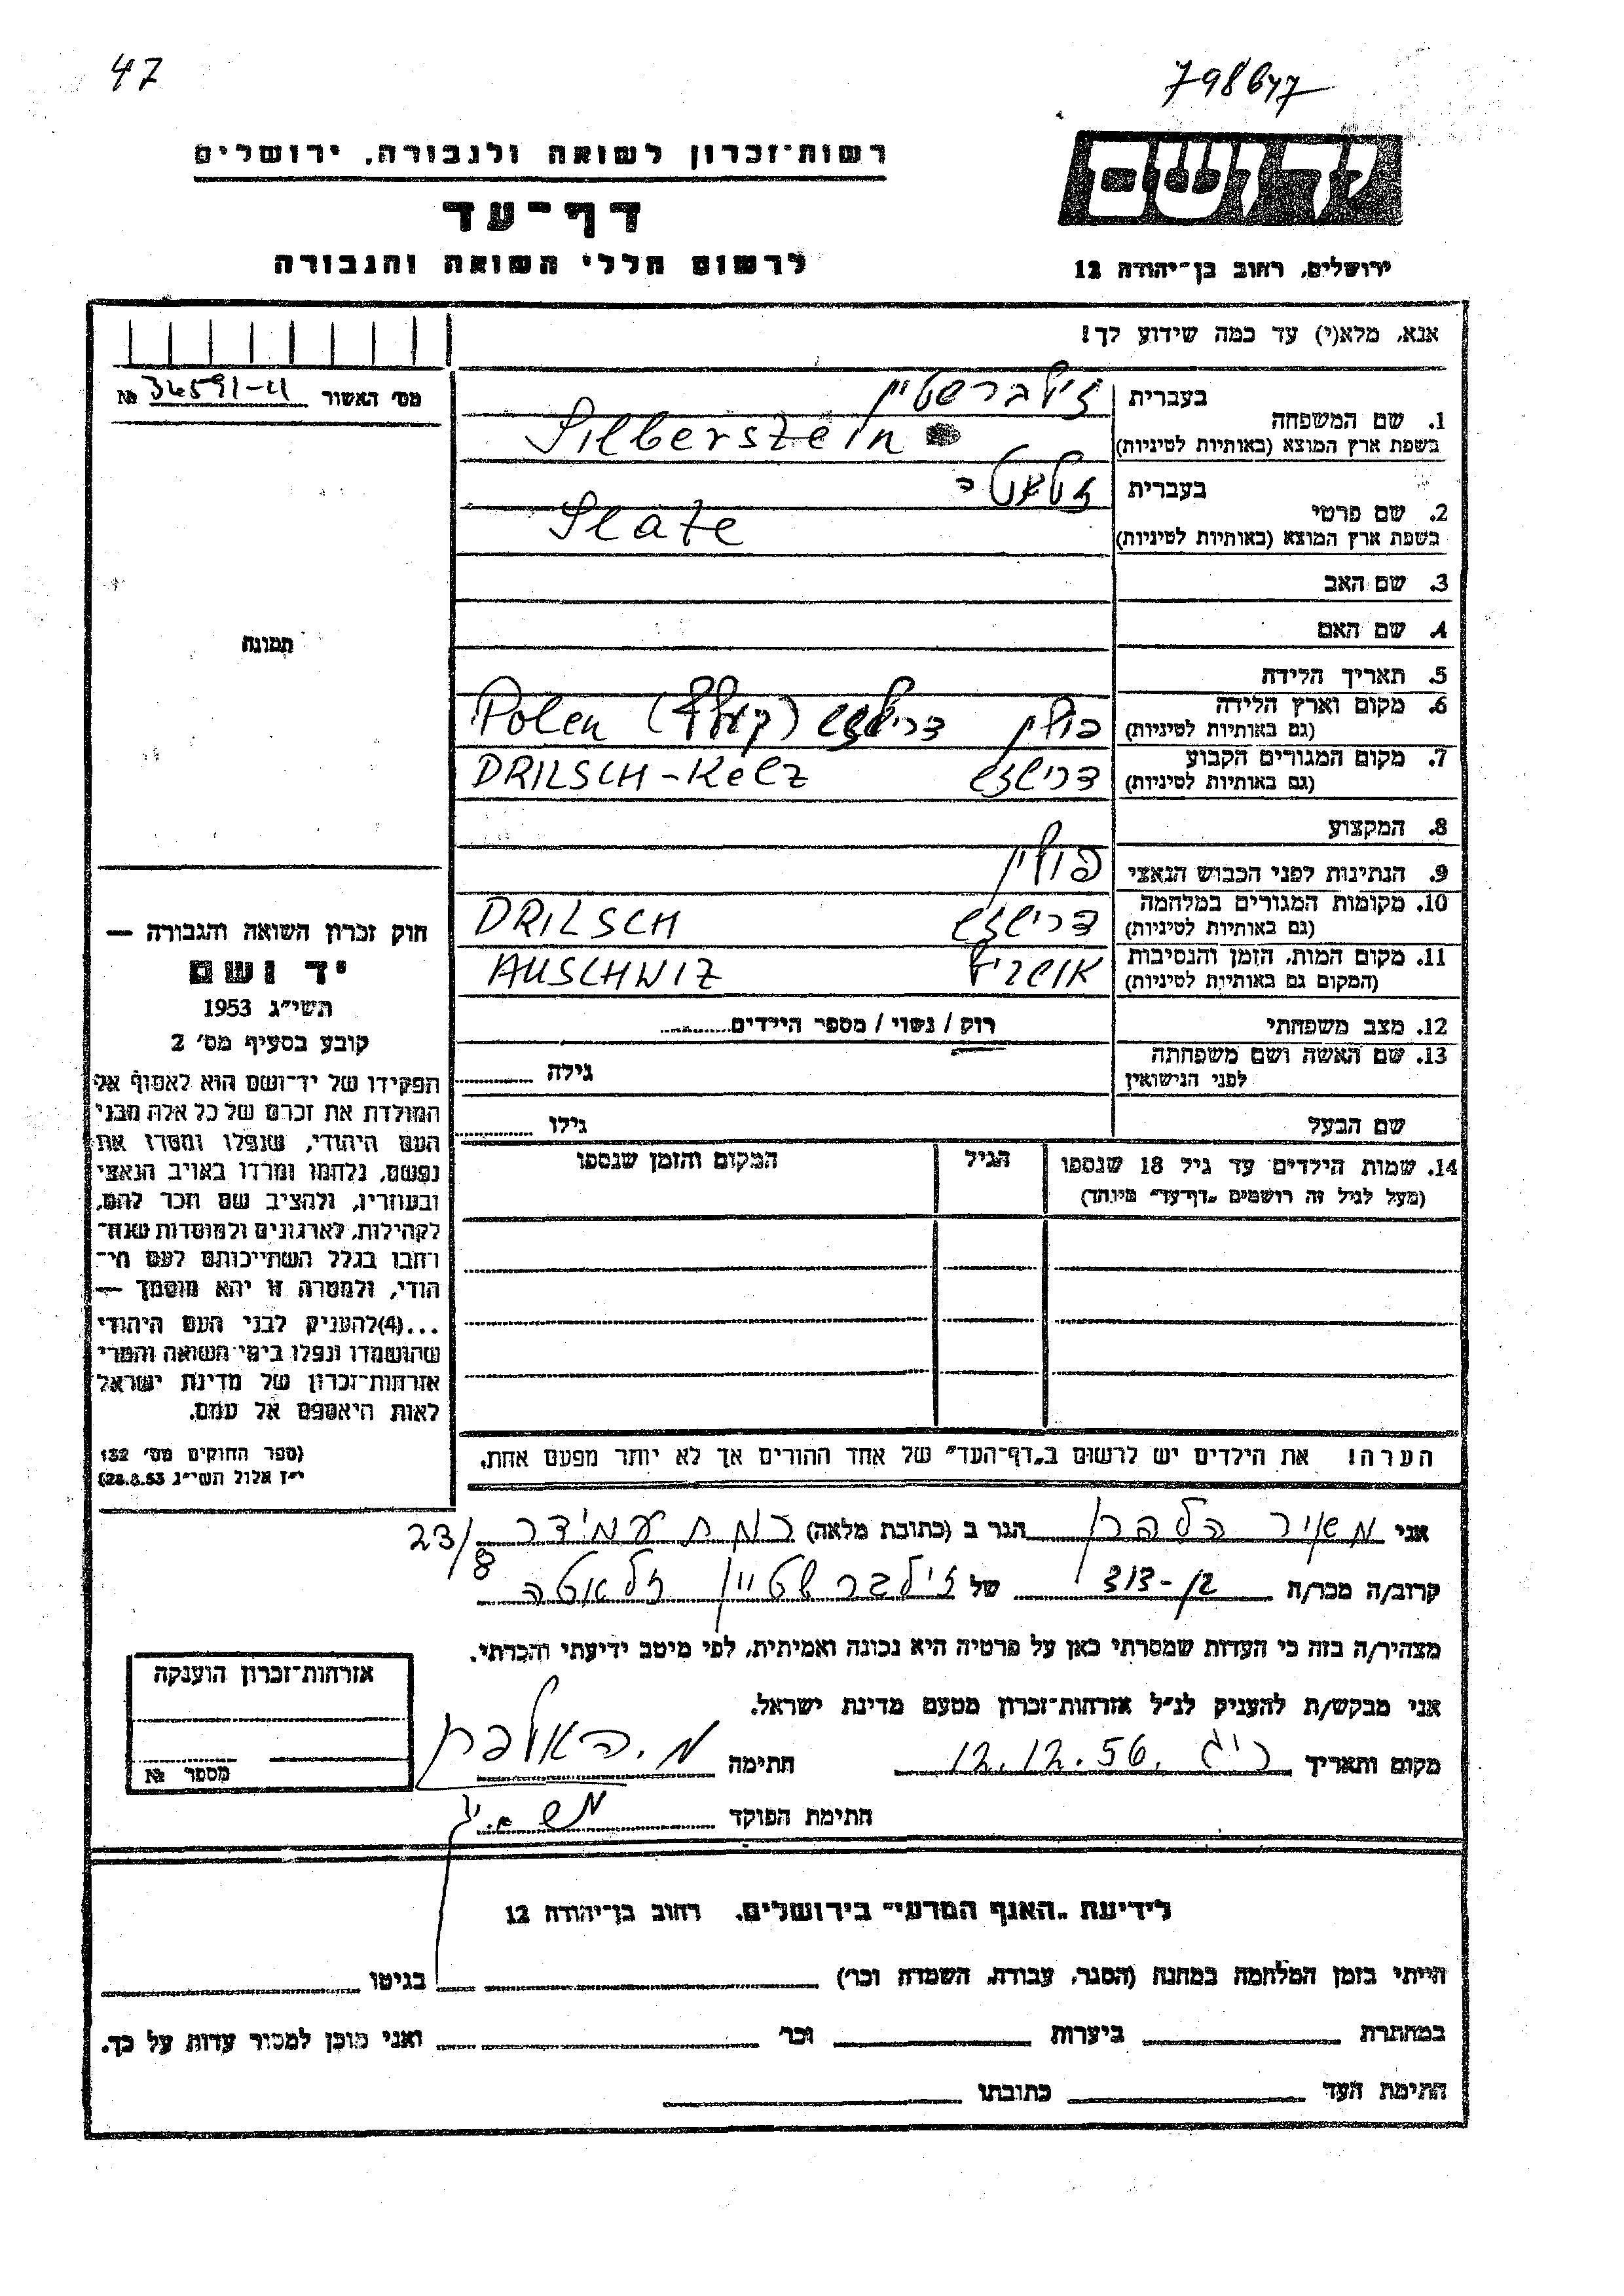 47
798647
רשות־זכרון לשואה ולגבורה, ירושלים
ידושם
דף־עד
לרשום חללי השואה והגבורה
ירושלים, רחוב בן־יהודה 12
אנא, מלא(י) עד כמה שידוע לך!
מס׳ האשור № 34591-41
1. שם המשפחה בעברית זילברשטיין
בשפת ארץ המוצא (באותיות לטיניות) Silberstein
2. שם פרטי בעברית
בשפת ארץ המוצא (באותיות לטיניות) Slate
3. שם האב
4. שם האם
תמונה
5. תאריך הלידה
6. מקום וארץ הלידה (גם באותיות לטיניות) פולין Polen
7. מקום המגורים הקבוע (גם באותיות לטיניות) DRILSCH - Kelz
8. המקצוע
9. הנתינות לפני הכבוש הנאצי פולין
10. מקומות המגורים במלחמה (גם באותיות לטיניות) DRILSCH
11. מקום המות, הזמן והנסיבות (המקום גם באותיות לטיניות) AUSCHWIZ
12. מצב משפחתי רוק / נשוי / מספר הילדים
13. שם האשה ושם משפחתה לפני הנישואין גילה
שם הבעל גילו
14. שמות הילדים עד גיל 18 שנספו הגיל המקום והזמן שנספו
(מעל לגיל זה רושמים „דף־עד״ מיוחד)
הערה! את הילדים יש לרשום ב„דף־העד״ של אחד ההורים אך לא יותר מפעם אחת.
חוק זכרון השואה והגבורה —
יד ושם
תשי״ג 1953
קובע בסעיף מס׳ 2
תפקידו של יד־ושם הוא לאסוף אל
המולדת את זכרם של כל אלה מבני
העם היהודי, שנפלו ומסרו את
נפשם, נלחמו ומרדו באויב הנאצי
ובעוזריו, ולהציב שם וזכר להם,
לקהילות, לארגונים ולמוסדות שנח־
רחבו בגלל השתייכותם לעם הי־
הודי, ולמטרה זו יהא מוסמך —
...(4)להעניק לבני העם היהודי
שהושמדו ונפלו בימי השואה והמרי
אזרחות־זכרון של מדינת ישראל
לאות היאספם אל עמם.
(ספר החוקים מס׳ 132
י״ז אלול תשי״ג 28.8.53)
אני מאיר הלברן הגר ב (כתובת מלאה) רמת עמידר 23/8
קרוב/ה מכר/ה בן-דוד של זילברשטיין זלאטה
מצהיר/ה בזה כי העדות שמסרתי כאן על פרטיה היא נכונה ואמיתית, לפי מיטב ידיעתי והכרתי.
אני מבקש/ת להעניק לנ״ל אזרחות־זכרון מטעם מדינת ישראל.
מקום ותאריך ר״ג 12.12.56 חתימה
חתימת הפוקד
אזרחות־זכרון הוענקה
מספר №
לידיעת „האגף המדעי״ בירושלים, רחוב בן־יהודה 12
הייתי בזמן המלחמה במחנה (הסגר, עבודה, השמדה וכר׳) בגיטו
במחתרת ביערות וכר׳ ואני מוכן למסור עדות על כך.
חתימת העד כתובתו